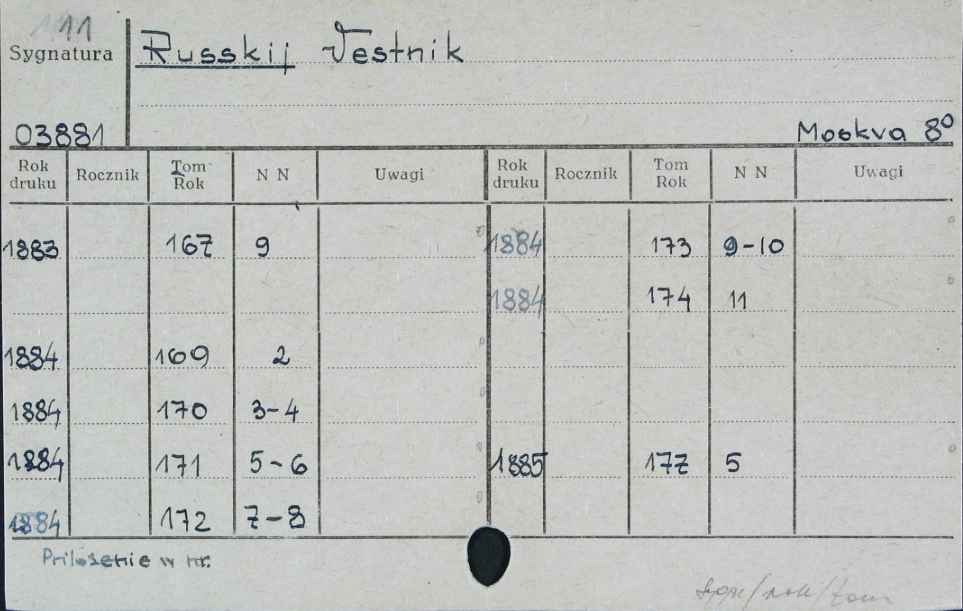 11
Sygnatura Russkij Vestnik
03881 Moskva 8º
Rok druku Rocznik Tom Rok N N Uwagi Rok druku Rocznik Tom Rok N N Uwagi
1883 167 9 1884 173 9-10
1884 174 11
1884 169 2
1884 170 3-4
1884 171 5-6 1885 177 5
1884 172 7-8
Priloženie w nr.